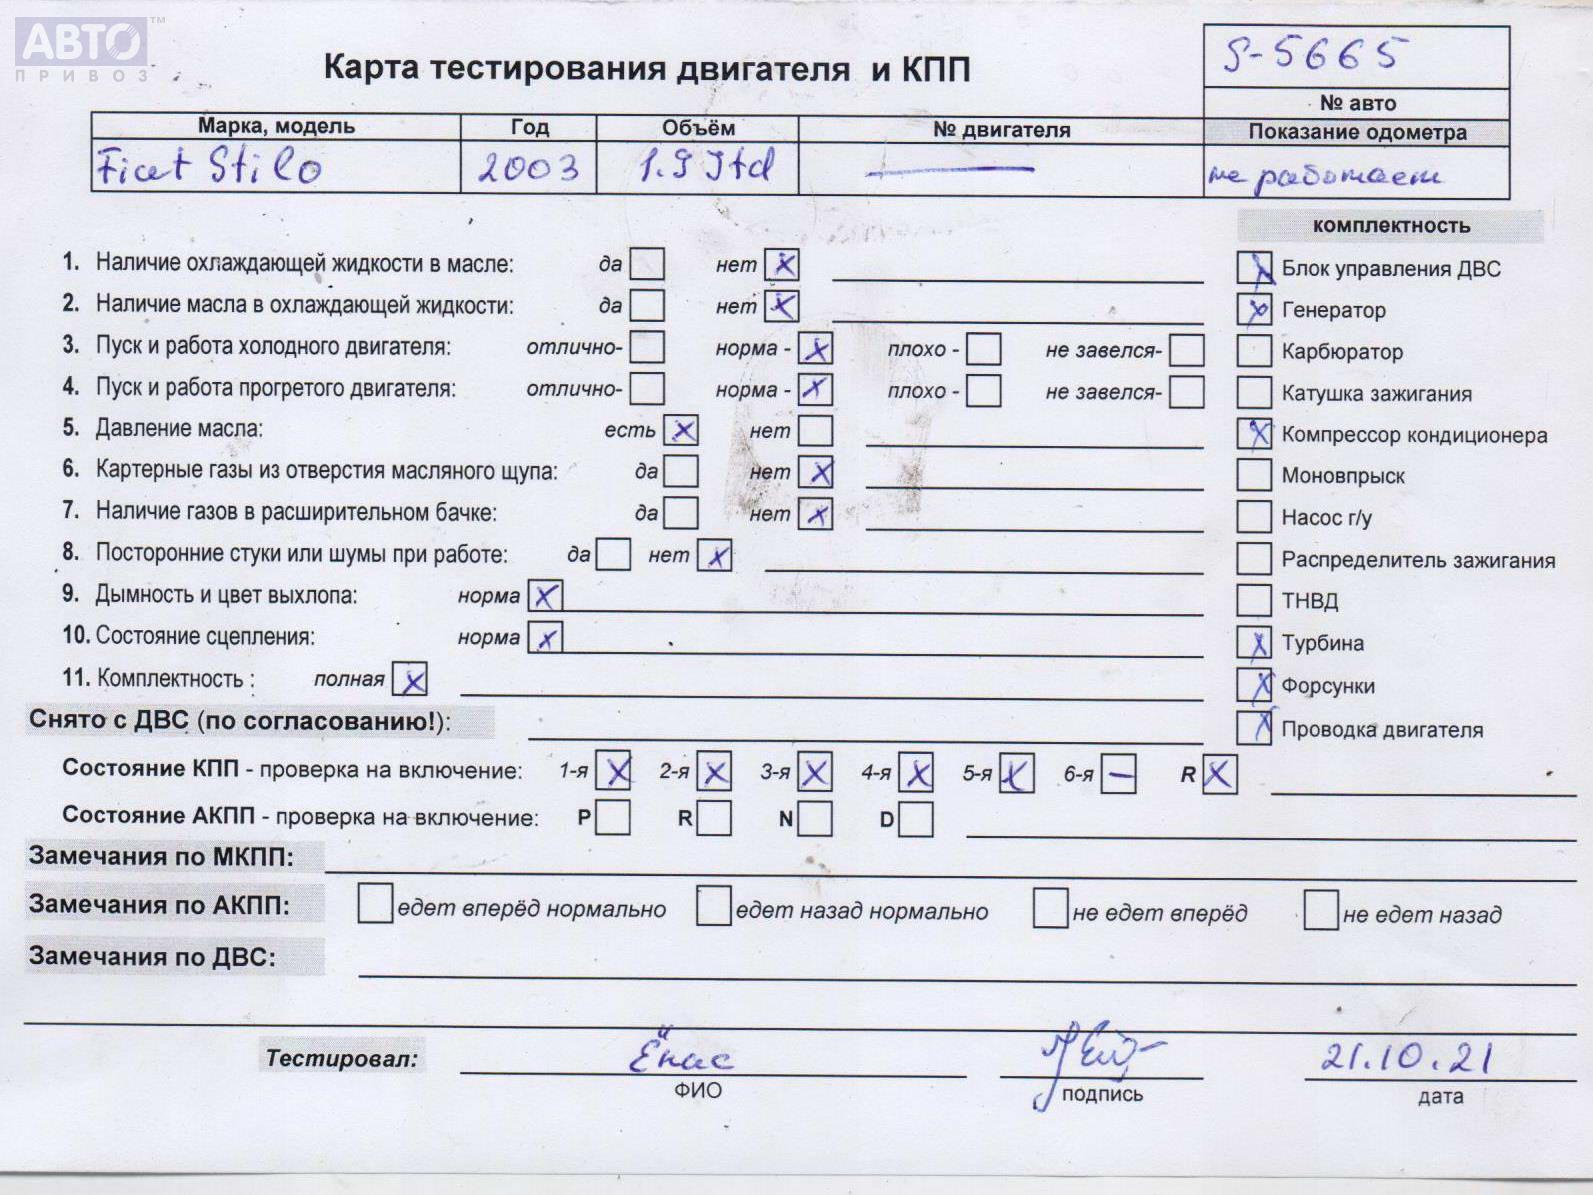 АВТО™
ПРИВОЗ
Карта тестирования двигателя и КПП
S-5665
№ авто
Марка, модель Год Объём № двигателя Показание одометра
Fiat Stilo 2003 1.9 Jtd — не работает
комплектность
1. Наличие охлаждающей жидкости в масле: да нет X
Блок управления ДВС
2. Наличие масла в охлаждающей жидкости: да нет X
Генератор
3. Пуск и работа холодного двигателя: отлично- норма - X плохо - не завелся-
Карбюратор
4. Пуск и работа прогретого двигателя: отлично- норма - X плохо - не завелся-
Катушка зажигания
5. Давление масла: есть X нет
X Компрессор кондиционера
6. Картерные газы из отверстия масляного щупа: да нет X
Моновпрыск
7. Наличие газов в расширительном бачке: да нет X
Насос г/у
8. Посторонние стуки или шумы при работе: да нет X
Распределитель зажигания
9. Дымность и цвет выхлопа: норма X
ТНВД
10. Состояние сцепления: норма X
X Турбина
11. Комплектность : полная X
X Форсунки
Снято с ДВС (по согласованию!):
X Проводка двигателя
Состояние КПП - проверка на включение: 1-я X 2-я X 3-я X 4-я X 5-я X 6-я — R X
Состояние АКПП - проверка на включение: P R N D
Замечания по МКПП:
Замечания по АКПП: едет вперёд нормально едет назад нормально не едет вперёд не едет назад
Замечания по ДВС:
Тестировал: Ёнас 21.10.21
ФИО подпись дата